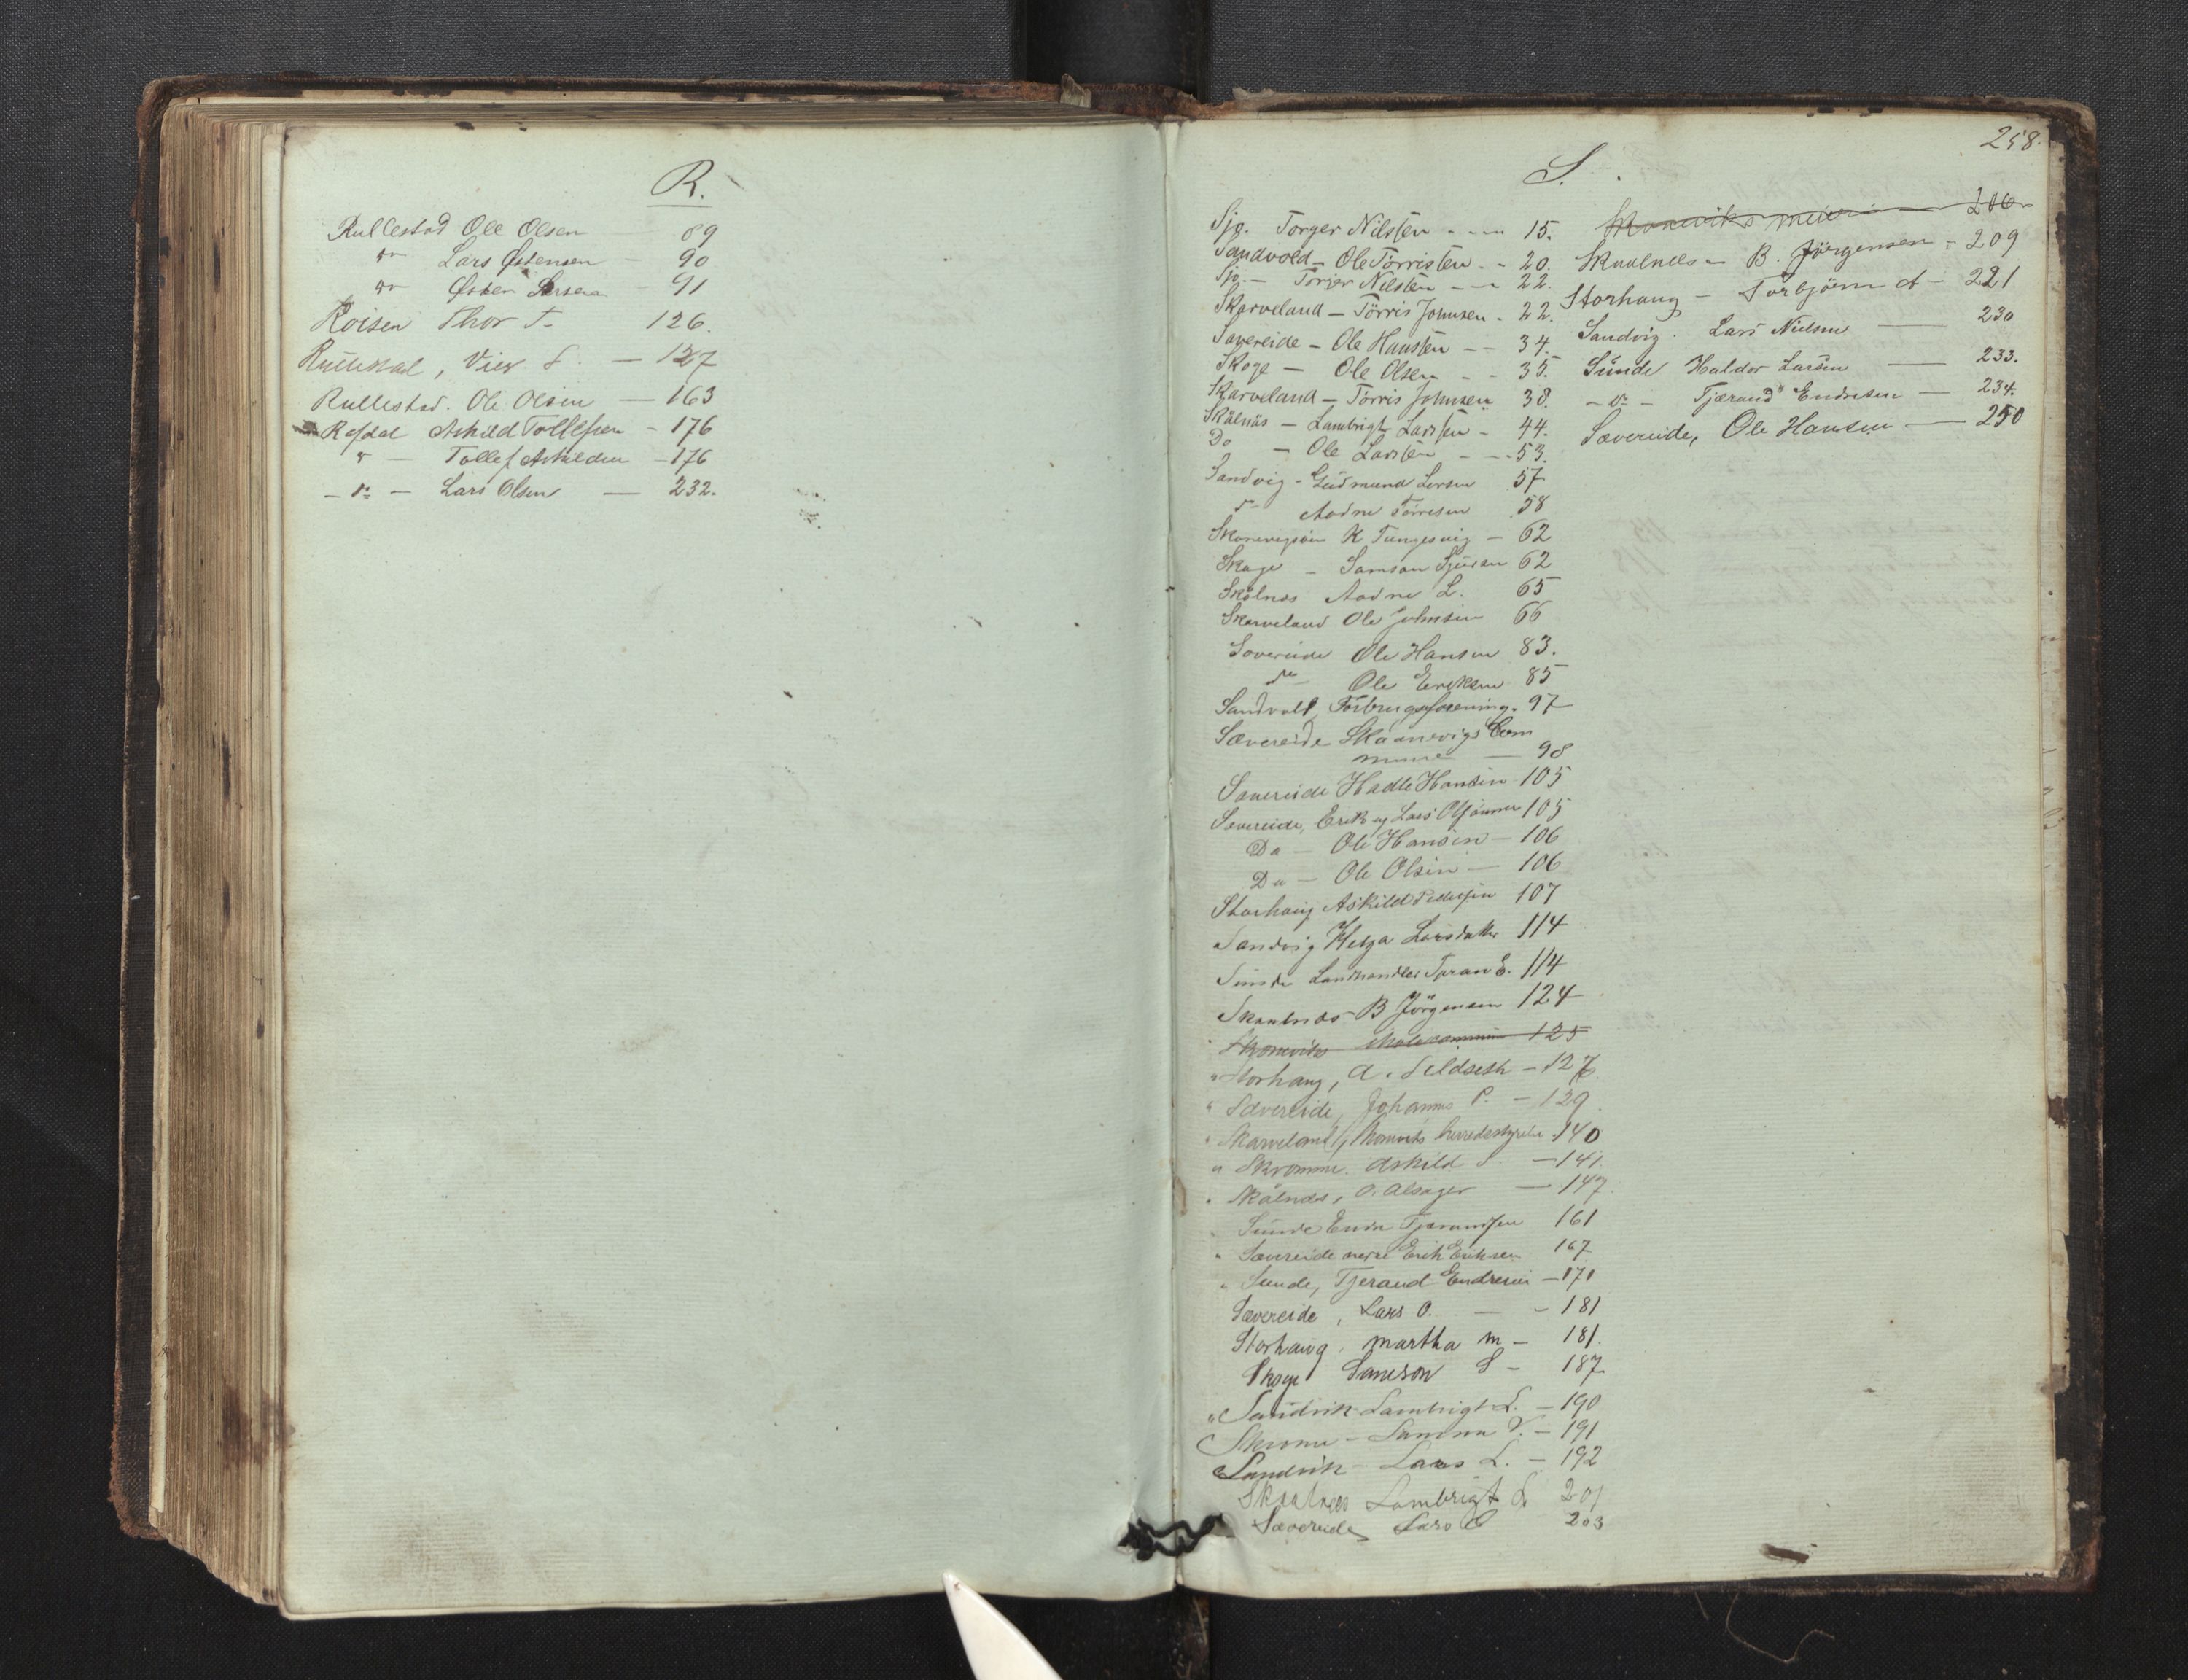 R.
Rullestad Ole Olsen 89
do Lars Østensen 90
do Østen Larsen 91
Roisen Thor T. 126.
Rullestad, S. — 127
Rullestad. Ole Olsen — 163
Rafdal Askild Tollefsen - 176
" — Tollef Askildsen - 176
- do - Lars Olsen — 232.
258.
S.
Sjo. Torger Nilssen - - - 15.
Sandvold - Ole Törrissen - - 20.
Sjo - Torger Nilssen - - - 22.
Skarveland - Törris Johnsen - 22.
Sævereide - Ole Hanssen - - 34.
Skoge — Ole Olsen - - 35.
Skarveland - Törris Johnsen 38.
Skålnäs - Lambrigt Larssen - 44.
Do - Ole Larssen - - - 53.
Sandvig - Gudmund Larsen 57
do Aadne Törresen 58
K. Tungesvig - 62
Skoge - Samson Sjursen 62
Skålnæs Aadne L. 65
Skarveland Ole Johnsen 66
Sævereide Ole Hansen 83.
do Ole Eriksen 85
Sandvold, Forbrugsforening. 97
Sævereide Skaanevigs Com
mune — 98
Sævereide Hadle Hansen 105
Sævereide, Erik og Lars Olssönner 105
Do — Ole Hansen - 106
Do — Ole Olsen — 106
Storhaug Askild Pedersen 107
Sandvig Helga Larsdatter 114
Sunde Landhandler E. 114
Skaalnæs B Jörgensen 124
Skonevik 125
" Storhaug, A. Seldseth - 127.
" Sævereide, Johannes P. - 129.
" Skarveland, Skoneviks herredsstyrelse . 140
" Skromme. Askild S. — 141.
" Skålnæs, O. Alsager — 147.
" Sunde Endre Tjerandsen 161
" Sævereide nedre Erik Eriksen 167
" Sunde, Tjerand Endresen - 171
Sævereide, Lars O. — - 181
Storhaug, Martha M - 181.
Skoge Samson S - 187
" Sandvik Lambrigt L. - 190
Skrome - Samson V. - 191
Sandvik - Lars L. - 192
Skaalnes Lambrigt L 201
Sævereide Lars O 203
Skoneviks meieri — 206
Skaalnes - B. Jörgensen - 209
Storhaug - Torbjörn A - 221
Sandvig. Lars Nielsen — 230
Sunde Haldor Larsen — 233.
- do - Tjærand Endresen — 234.
Sævereide, Ole Hansen — 250